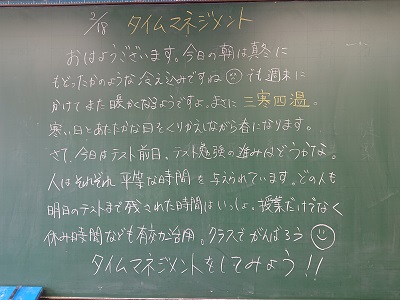 2/18 タイムマネジメント
おはようございます。今日の朝は真冬に
もどったかのような冷え込みですね でも週末に
かけてまた暖かくなるようですよ。まさに三寒四温。
寒い日とあたたかな日をくりかえしながら春になります。
さて、今日はテスト前日、テスト勉強の進みはどうかな。
人はそれぞれ平等な時間を与えられています。どの人も
明日のテストまで残された時間はいっしょ。授業だけでなく
休み時間なども有効に活用。クラスでがんばろう
タイムマネジメントをしてみよう!!